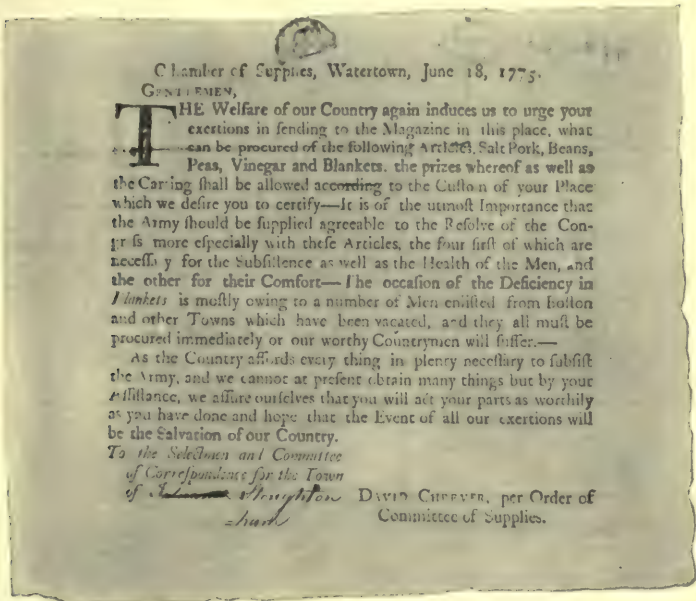 Chamber of Supplies, Watertown, June 18, 1775.
GENTLEMEN,
THE Welfare of our Country again induces us to urge your
exertions in ſending to the Magazine in this place, what
can be procured of the following Articles, Salt Pork, Beans,
Peas, Vinegar and Blankets. the prizes whereof as well as
the Carting ſhall be allowed according to the Cuſtom of your Place
which we deſire you to certify—It is of the utmoſt Importance that
the Army ſhould be ſupplied agreeable to the Reſolve of the Con-
greſs more eſpecially with theſe Articles, the four firſt of which are
neceſſary for the Subſiſtence as well as the Health of the Men, and
the other for their Comfort—The occaſion of the Deficiency in
Blankets is moſtly owing to a number of Men enliſted from Boſton
and other Towns which have been vacated, and they all muſt be
procured immediately or our worthy Countrymen will ſuffer.—
As the Country affords every thing in plenty neceſſary to ſubſiſt
the Army, and we cannot at preſent obtain many things but by your
Aſſiſtance, we aſſure ourſelves that you will act your parts as worthily
as you have done and hope that the Event of all our exertions will
be the Salvation of our Country.
To the Selectmen and Committee
of Correſpondence for the Town
of Stoughton DAVID CHEEVER, per Order of
ham Committee of Supplies.